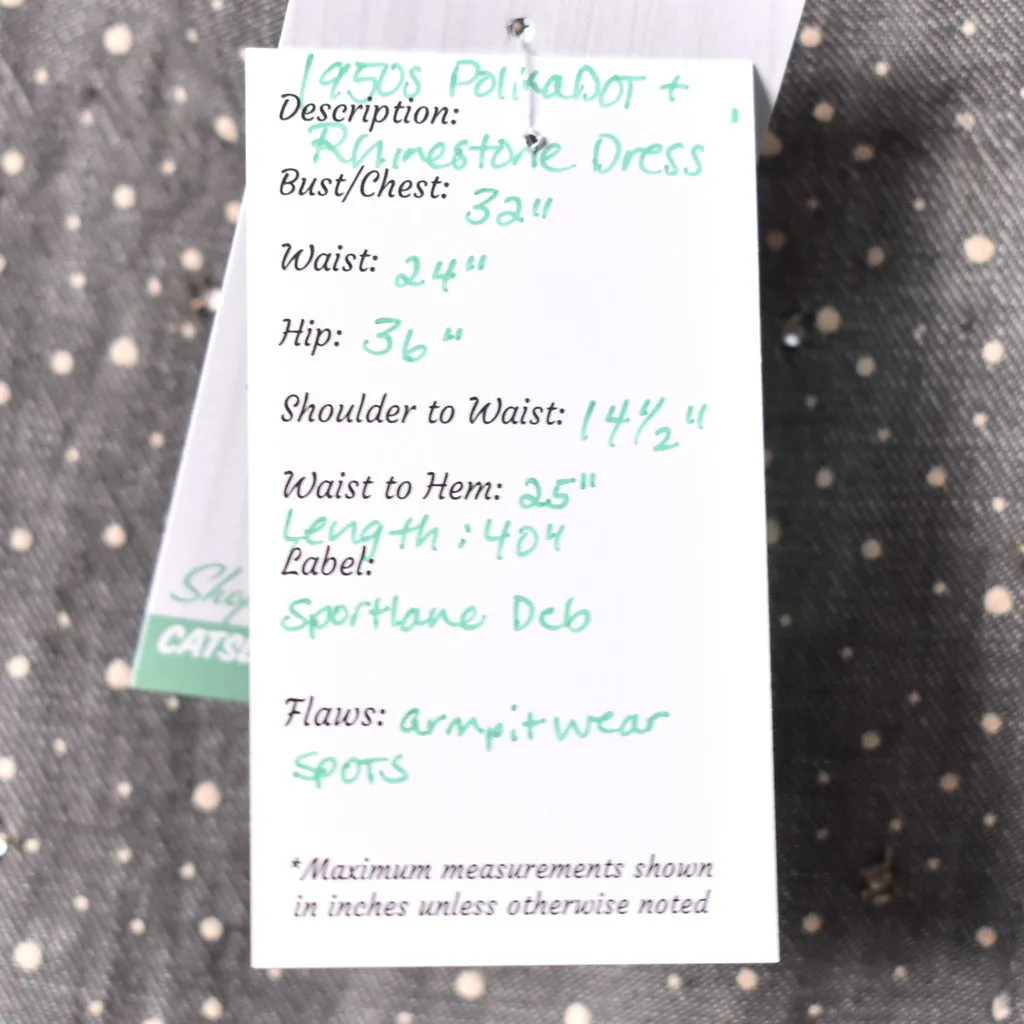 1950s PolkaDOT +
Description:
Rhinestone Dress
Bust/Chest: 32"
Waist: 24"
Hip: 36"
Shoulder to Waist: 14 1/2"
Waist to Hem: 25"
Length: 40"
Label:
Sportlane Deb
Flaws: armpit wear
spots
*Maximum measurements shown
in inches unless otherwise noted